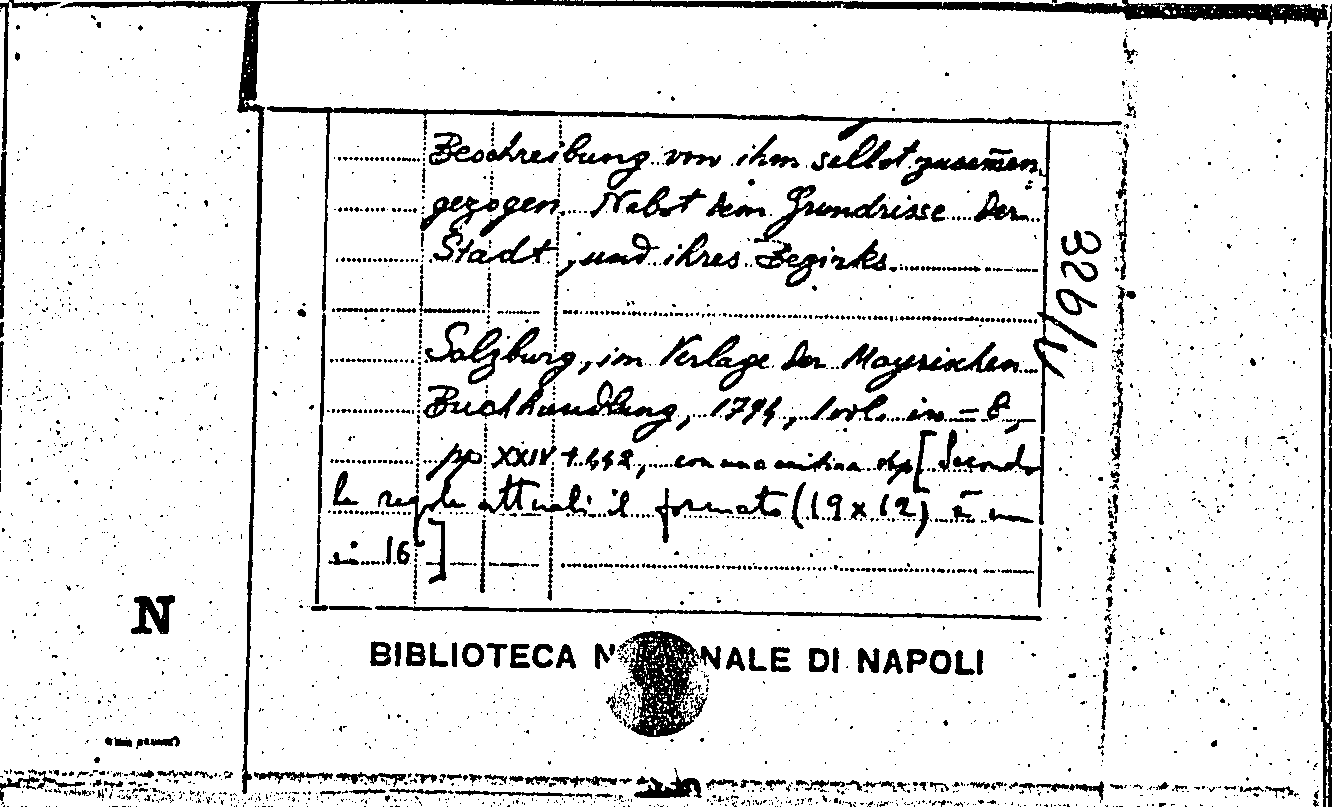 Beschreibung von ihm selbst zusam̄en
gezogen. Nebst dem Grundrisse der
Stadt, und ihres Bezirks.
Salzburg, im Verlage der Mayrischen
Buchhandlung, 1794, 1 vol. in-8,
pp XXIV + 442, con una antica [Secondo
le regole attuali il formato (19 x 12) è un
in 16]
326/V
N
BIBLIOTECA NALE DI NAPOLI